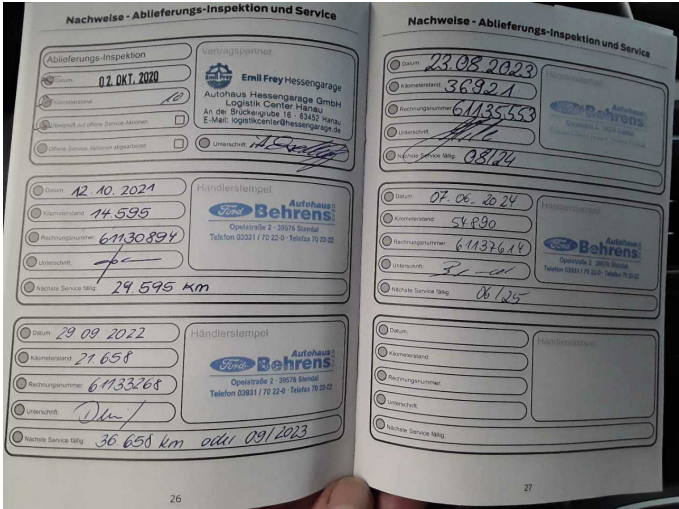 Nachweise - Ablieferungs-Inspektion und Service
Ablieferungs-Inspektion
Datum: 02. OKT. 2020
Kilometerstand: 10
Überprüft auf offene Service-Aktionen
Offene Service-Aktionen abgearbeitet
Vertragspartner
Emil Frey
Emil Frey Hessengarage
Autohaus Hessengarage GmbH
Logistik Center Hanau
An der Brückengrube 16 · 63452 Hanau
E-Mail: logistikcenter@hessengarage.de
Unterschrift:
Datum: 12.10.2021
Kilometerstand: 14.595
Rechnungsnummer: 61130894
Unterschrift:
Nächste Service fällig: 29.595 km
Händlerstempel
Autohaus
Ford Behrens
Opelstraße 2 · 39576 Stendal
Telefon 03931 / 70 22-0 · Telefax 70 22-22
Datum: 29.09.2022
Kilometerstand: 21.658
Rechnungsnummer: 61133268
Unterschrift:
Nächste Service fällig: 36.658 km oder 09/2023
Händlerstempel
Autohaus
Ford Behrens
Opelstraße 2 · 39576 Stendal
Telefon 03931 / 70 22-0 · Telefax 70 22-22
26
Nachweise - Ablieferungs-Inspektion und Service
Datum: 23.08.2023
Kilometerstand: 36921
Rechnungsnummer: 61135553
Unterschrift:
Nächste Service fällig: 08/24
Händlerstempel
Autohaus
Ford Behrens
Datum: 07.06.2024
Kilometerstand: 54890
Rechnungsnummer: 61137614
Unterschrift:
Nächste Service fällig: 06/25
Händlerstempel
Autohaus
Ford Behrens
Opelstraße 2 · 39576 Stendal
Telefon 03931 / 70 22-0 · Telefax 70 22-22
Datum:
Kilometerstand:
Rechnungsnummer:
Unterschrift:
Nächste Service fällig:
Händlerstempel
27